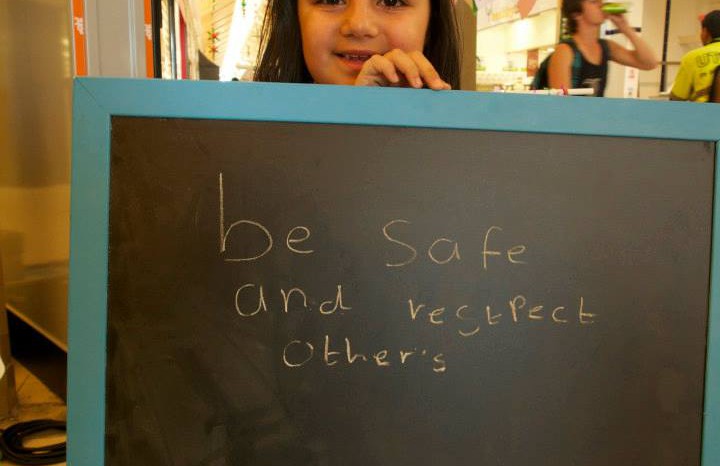 be safe
and restpect
other's